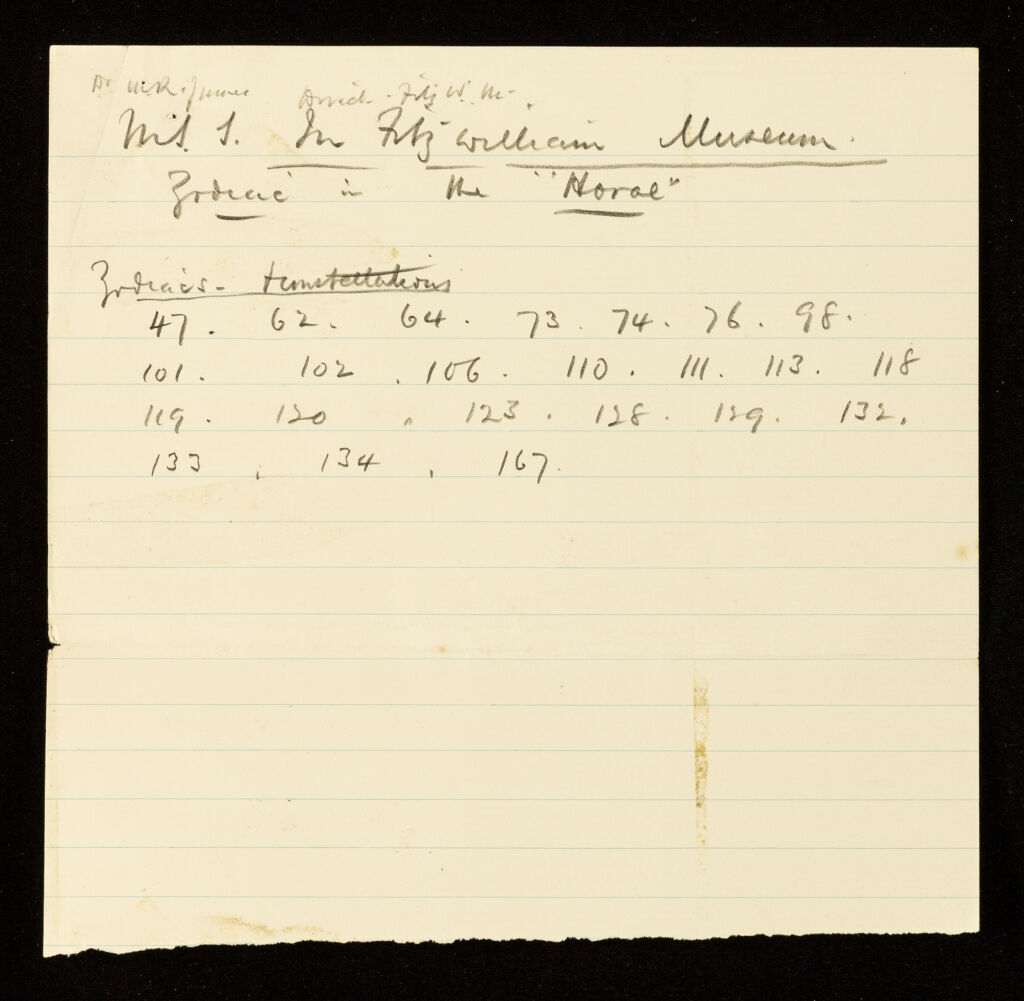 Dr. M.R. James Fitz W. M.
MS S. In Fitzwilliam Museum.
Zodiac in the "Horae"
Zodiacs - Constellations
47. 62. 64. 73. 74. 76. 98.
101. 102. 106. 110. 111. 113. 118
119. 120. 123. 128. 129. 132.
133. 134. 167.